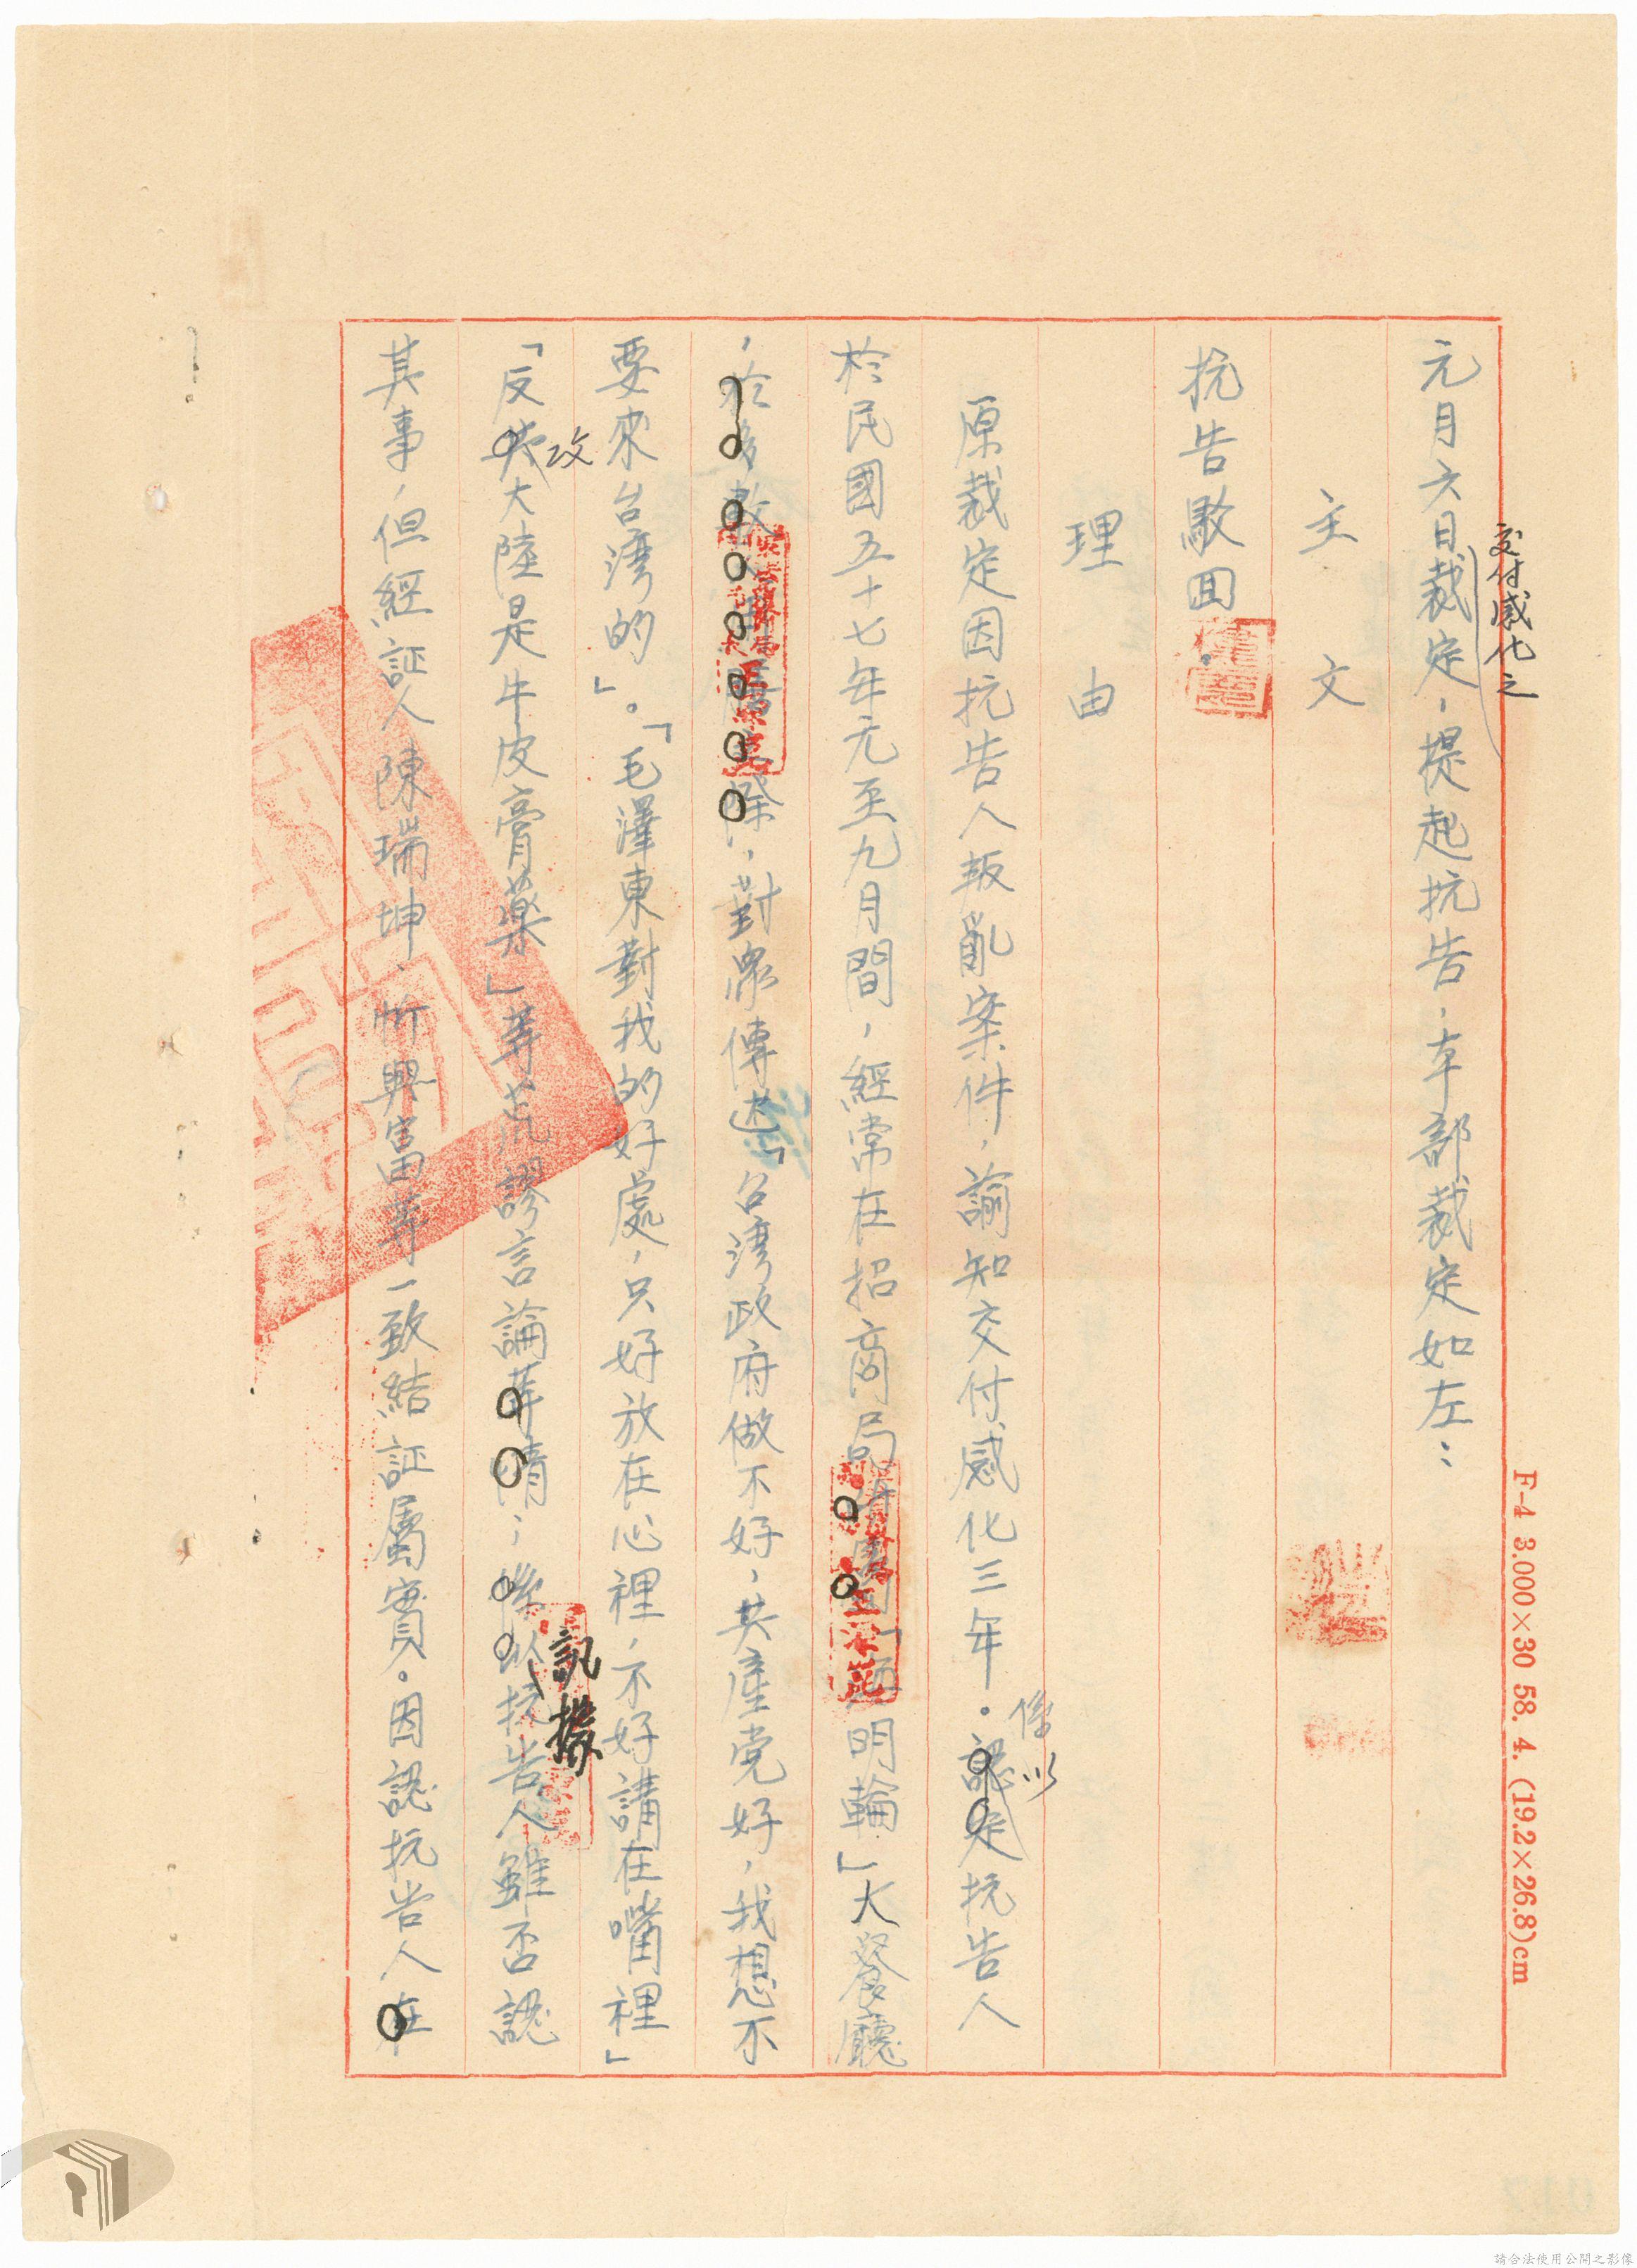 元月六日交付感化之裁定，提起抗告，本部裁定如左：
主文
抗告駁回。
理由
原裁定因抗告人叛亂案件，諭知交付感化三年。係以認定抗告人
於民國五十七年元至九月間，經常在招商局所屬「 明輪」大餐廳
，於 ，對眾傳述「台湾政府做不好，共產党好，我想不
要來台湾的」。「毛澤東對我的好處，只好放在心裡，不好講在嘴裡」
「反共攻大陸是牛皮膏藥」等荒謬言論等情；係以訊據抗告人雖否認
其事，但經証人陳瑞坤、忻興富等一致結証屬實。因認抗告人在
F-4 3.000×30 58. 4. (19.2×26.8)cm
請合法使用公開之影像